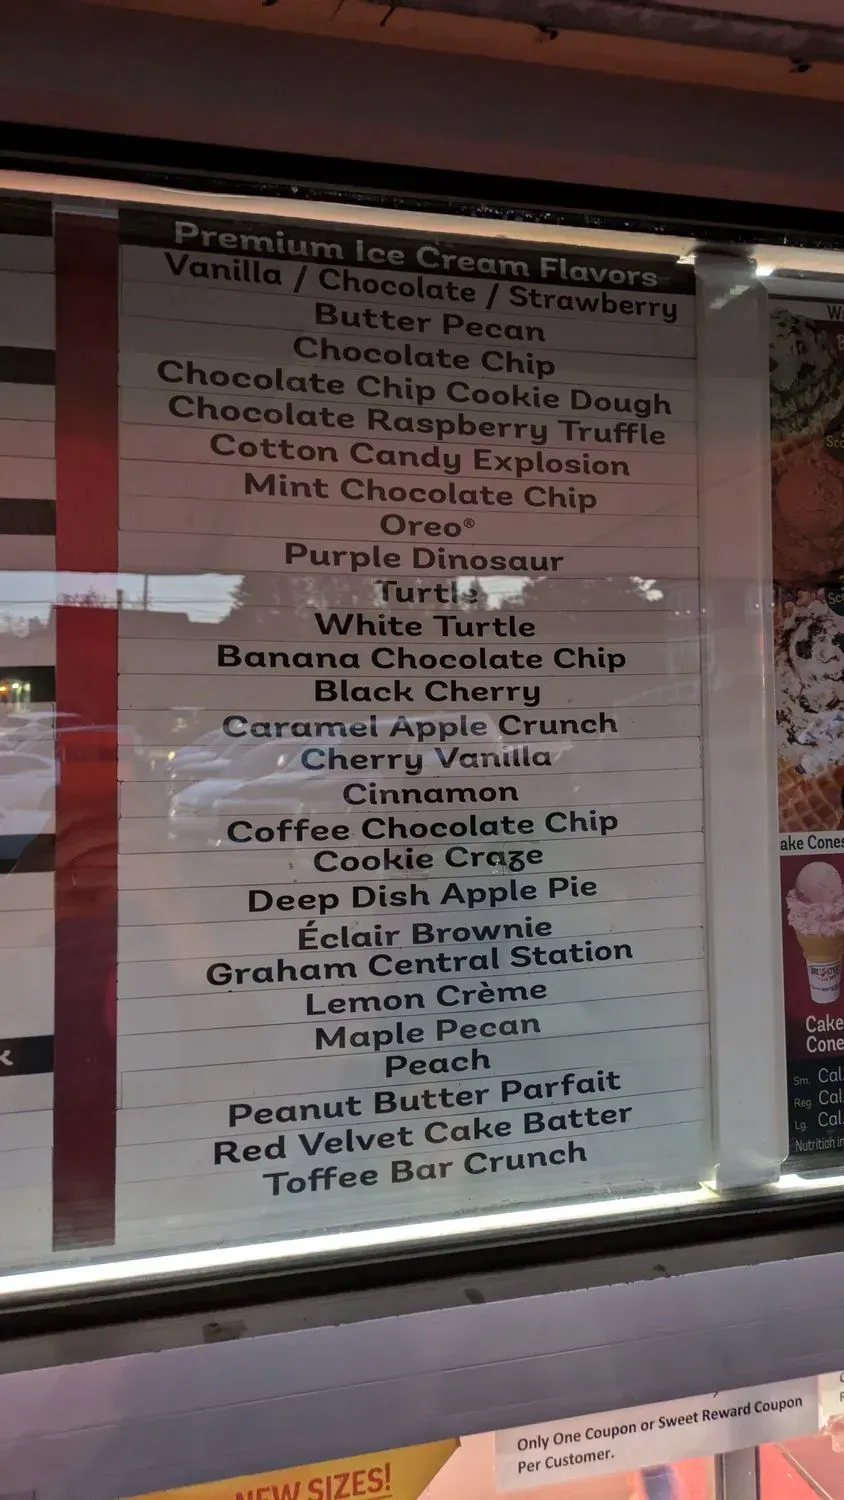 Premium Ice Cream Flavors
Vanilla / Chocolate / Strawberry
Butter Pecan
Chocolate Chip
Chocolate Chip Cookie Dough
Chocolate Raspberry Truffle
Cotton Candy Explosion
Mint Chocolate Chip
Oreo®
Purple Dinosaur
Turtle
White Turtle
Banana Chocolate Chip
Black Cherry
Caramel Apple Crunch
Cherry Vanilla
Cinnamon
Coffee Chocolate Chip
Cookie Craze
Deep Dish Apple Pie
Éclair Brownie
Graham Central Station
Lemon Crème
Maple Pecan
Peach
Peanut Butter Parfait
Red Velvet Cake Batter
Toffee Bar Crunch
ake Cones
Cake
Cone
Sm. Cal.
Reg Cal
Lg. Cal.
Nutrition in
Only One Coupon or Sweet Reward Coupon
Per Customer.
NEW SIZES!